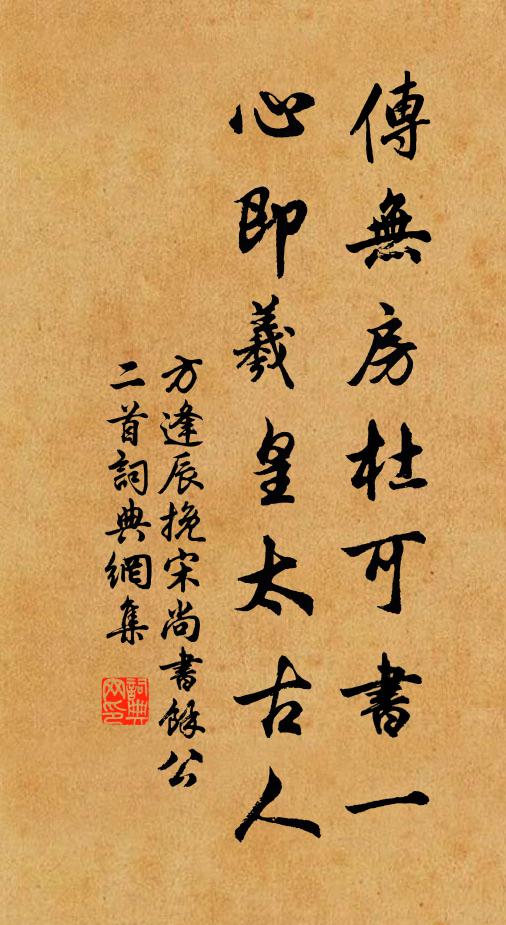 傳無房杜可書一
心即羲皇太古人
方逢辰挽宋尚書餘公
二首詞典網集
詞典網印